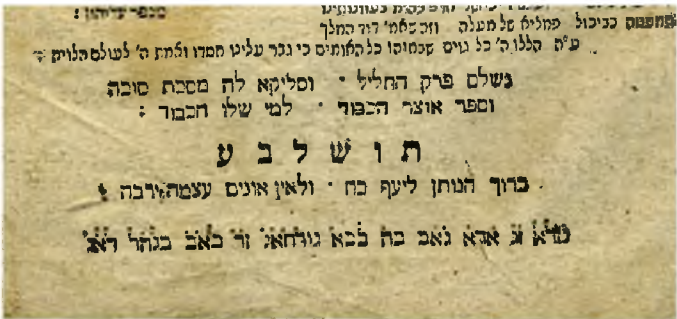 מספר עדיהון :
כביכול פמליא של מעלה וזה שאמ' דוד המלך
ע"ה הללו ה' כל גוים שבחוהו כל האומים כי גבר עלינו חסדו ואמת ה' לעולם הלויה
נשלם פרק החליל · וסליקא לה מסכת סוכה
וספר אוצר הכבוד · למי שלו הכבוד :
ת ו ש ל ב ע
ברוך הנותן ליעף כח · ולאין אונים עצמה ירבה :
אדא גאב בה בבא זר באב בנהל דאג